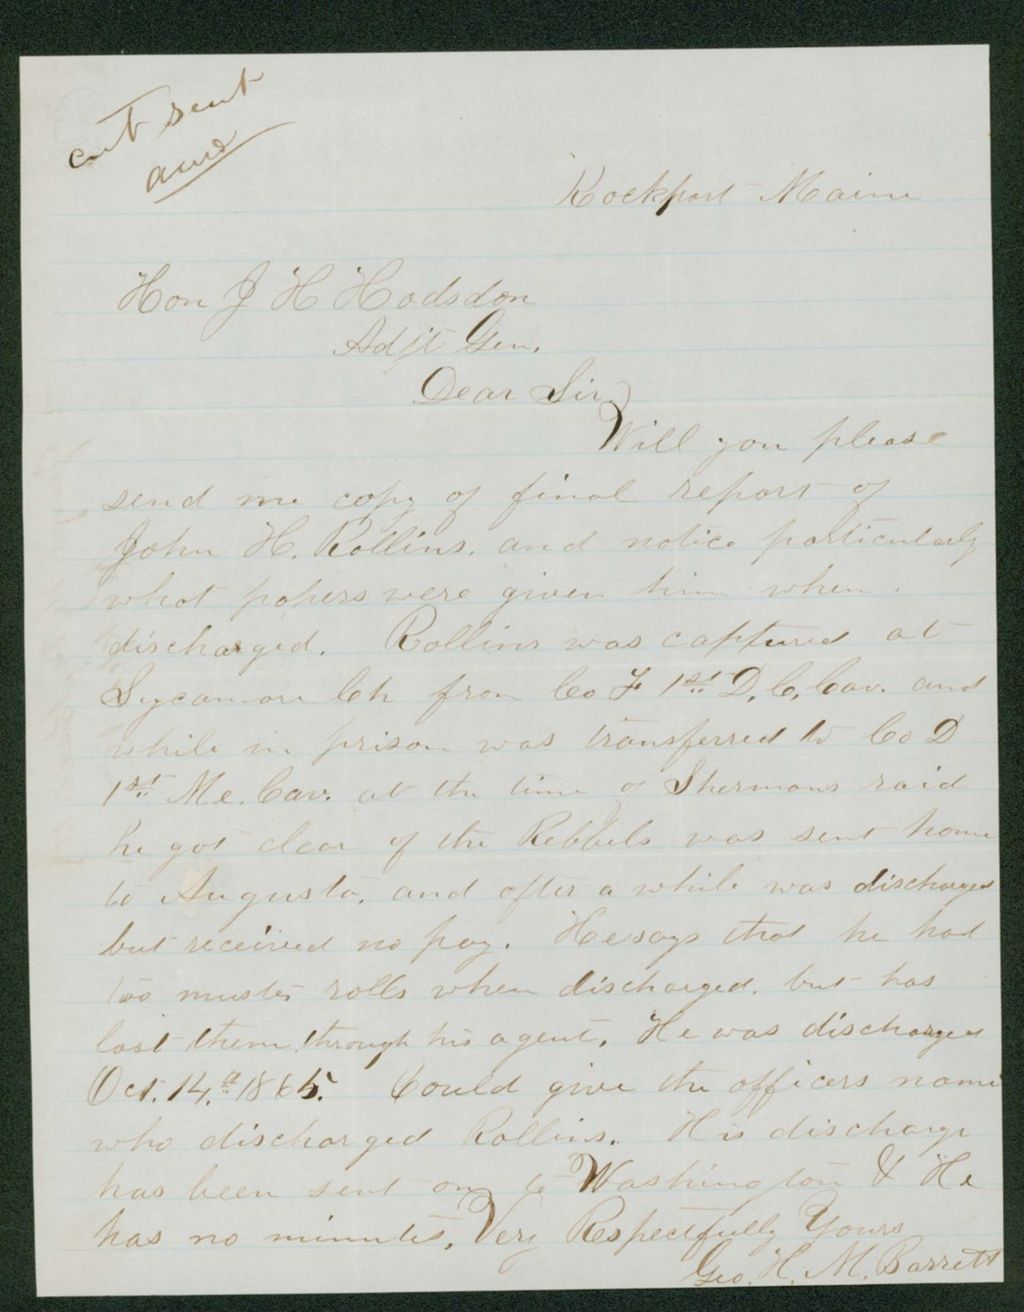 cert sent
Rockport Maine
Hon J H Hodsdon
Adjt Gen.
Dear Sir,
Will you please
send me copy of final report of
John H. Rollins. and notice particularly
what papers were given him when
discharged. Rollins was captured at
Sycamore Ch from Co F 1st D. C. Cav. and
while in prison was transferred to Co D
1st Me. Cav. at the time of Shermans raid
he got clear of the Rebbels was sent home
to Augusta, and after a while was discharged
but received no pay. He says that he had
two muster rolls when discharged. but has
lost them through his agent. He was discharged
Oct. 14. 1865. Could give the officers name
who discharged Rollins. His discharge
has been sent on to Washington & He
has no minutes. Very Respectfully Yours
Geo. H. M. Barrett